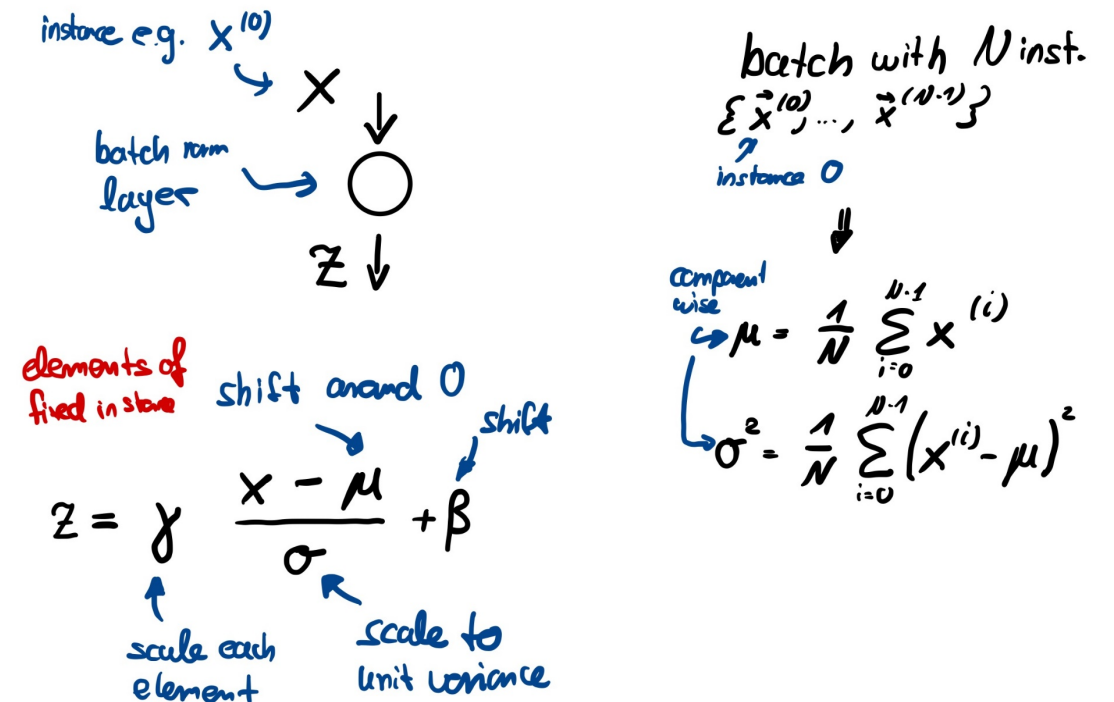 instance e.g. x⁽⁰⁾
x
batch norm
layer
z
elements of
fixed instance
shift around 0
shift
z = γ (x - μ)/σ + β
scale each
element
scale to
unit variance
batch with N inst.
{x⃗⁽⁰⁾, ..., x⃗⁽ᴺ⁻¹⁾}
instance 0
⇓
component
wise
μ = 1/N Σ_{i=0}^{N-1} x⁽ⁱ⁾
σ² = 1/N Σ_{i=0}^{N-1} (x⁽ⁱ⁾ - μ)²